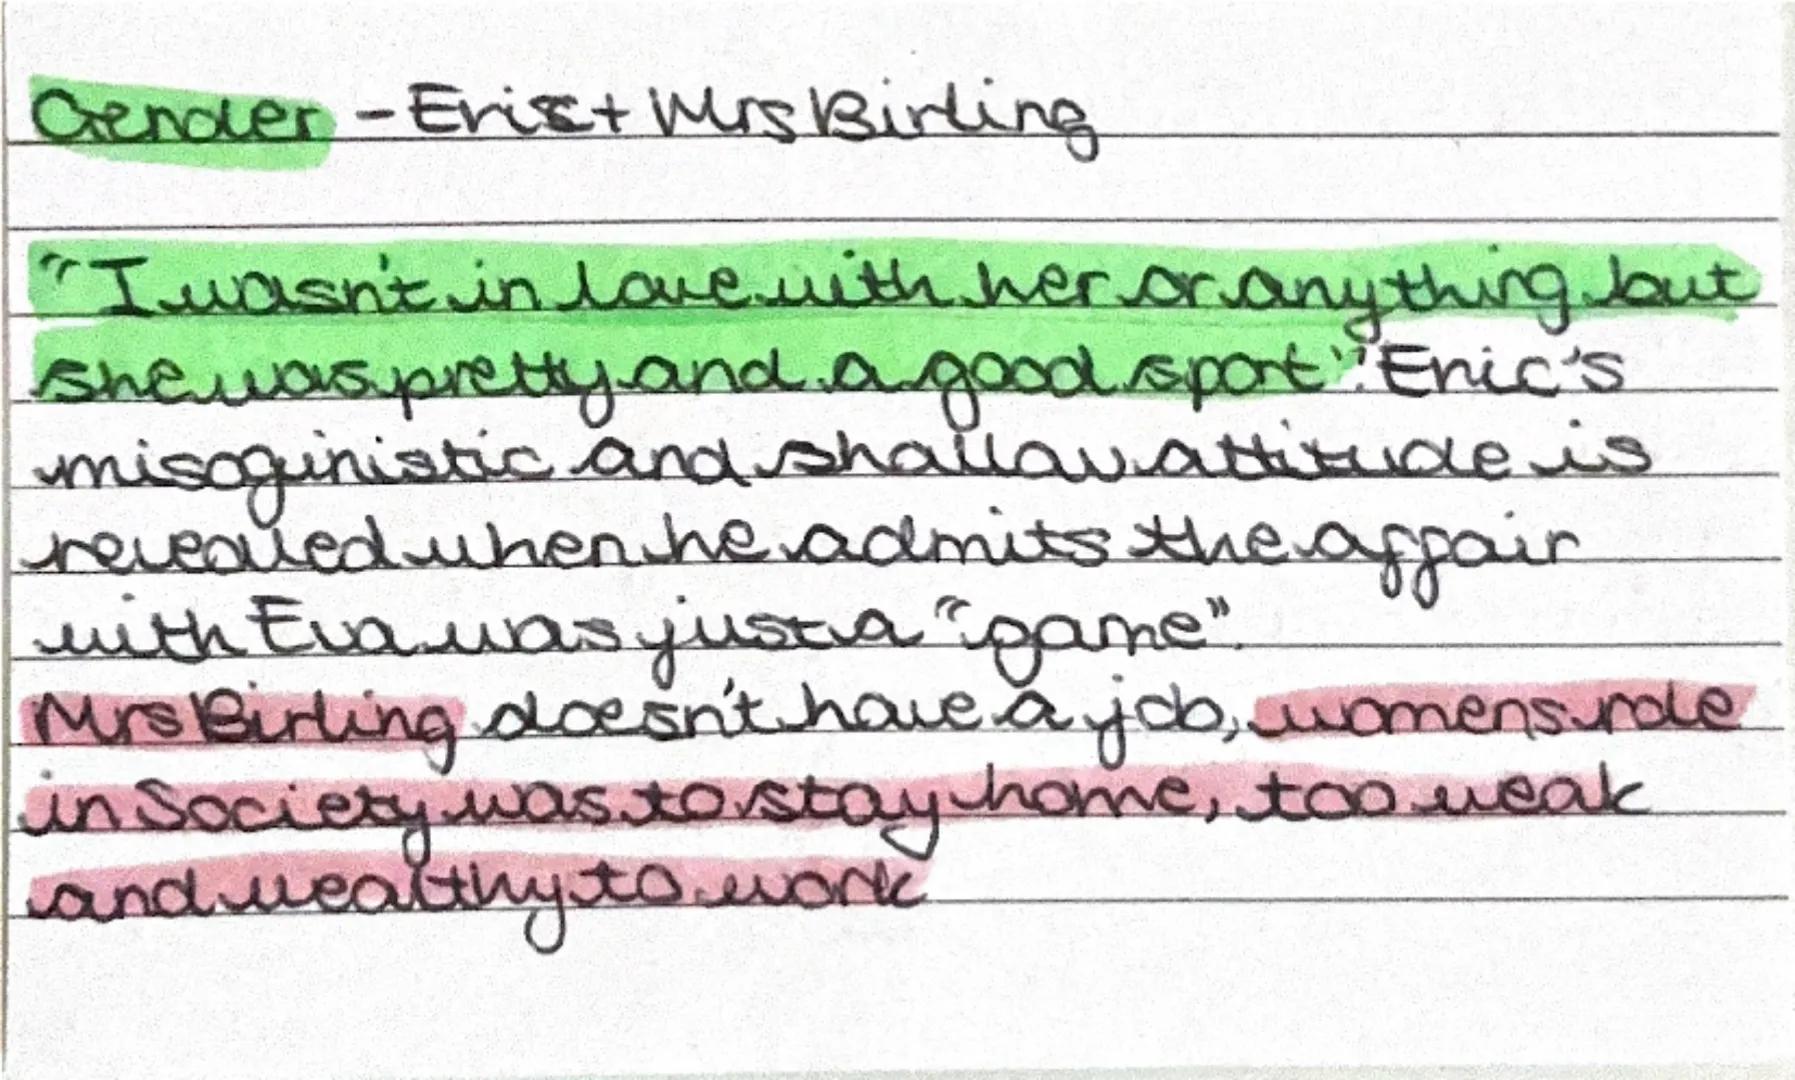 Gender - Eric + Mrs Birling
"I wasn't in love with her or anything but
she was pretty and a good sport". Eric's
misoginistic and shallow attitude is
revealed when he admits the affair
with Eva was just a "game".
Mrs Birling doesn't have a job, womens role
in Society was to stay home, too weak
and wealthy to work